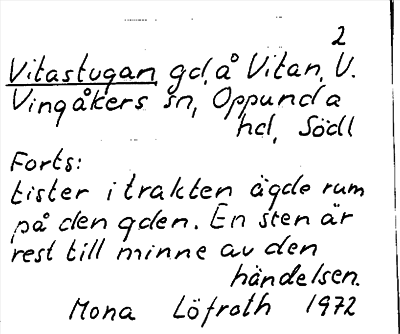 2
Vitastugan gd, å Vitan, V.
Vingåkers sn, Oppunda
hd, Södl
Forts:
tister i trakten ägde rum
på den gden. En sten är
rest till minne av den
händelsen.
Mona Löfroth 1972